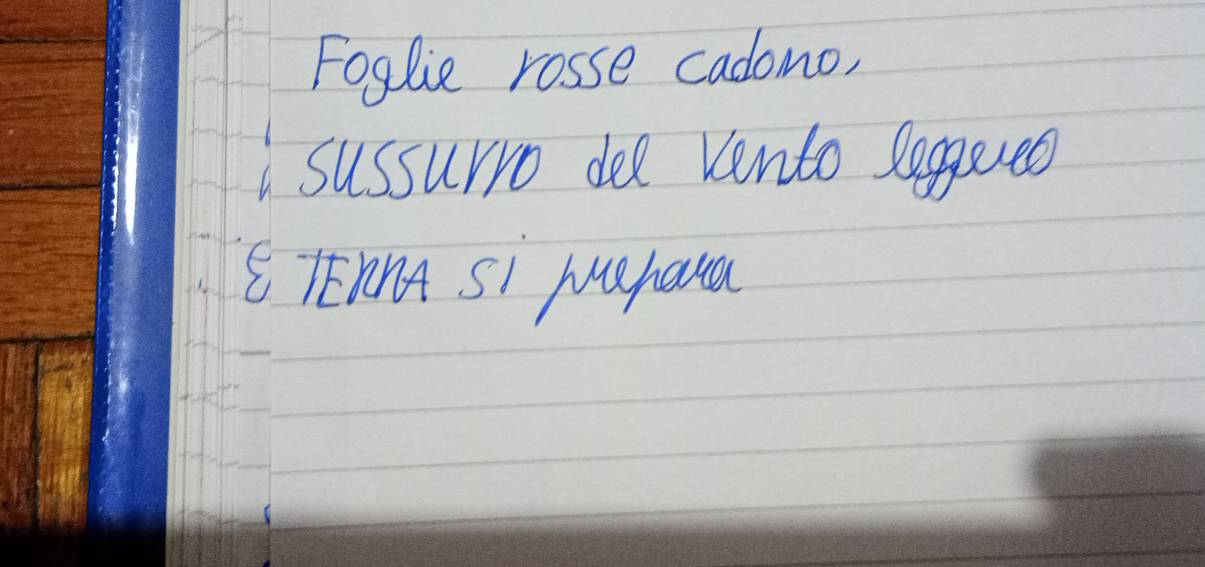 Foglie rosse cadono,
SUSSURRO del vento leggero
E TERRA si prepara